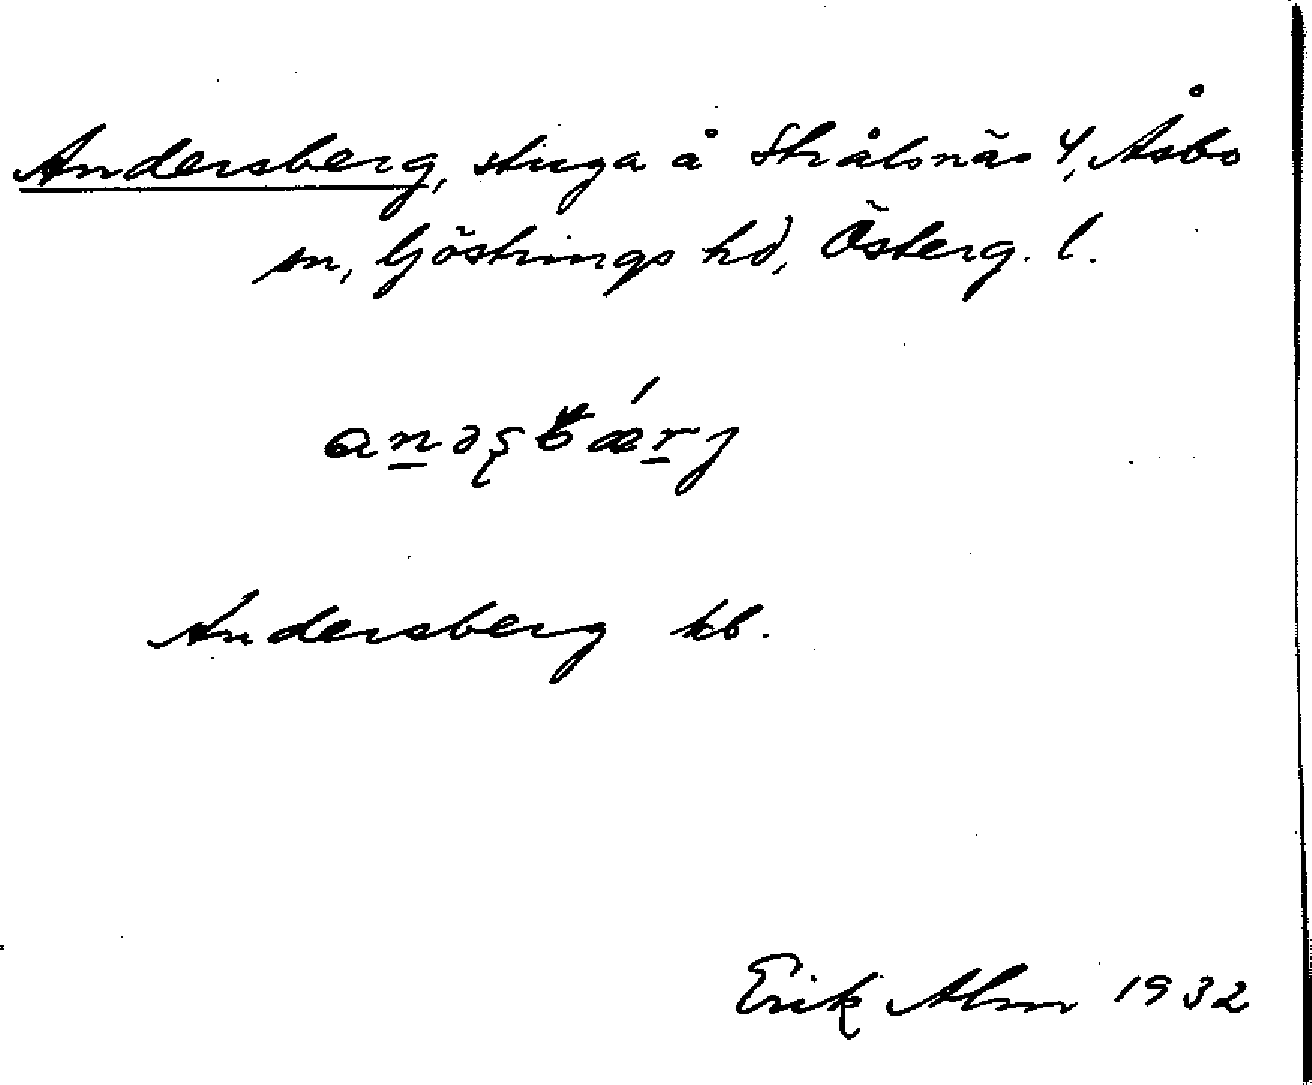 Andersberg, stuga å Strålsnäs 4, Åsbo
sn, Göstrings hd, Österg. l.
Andersberg kb.
Erik Alm 1932